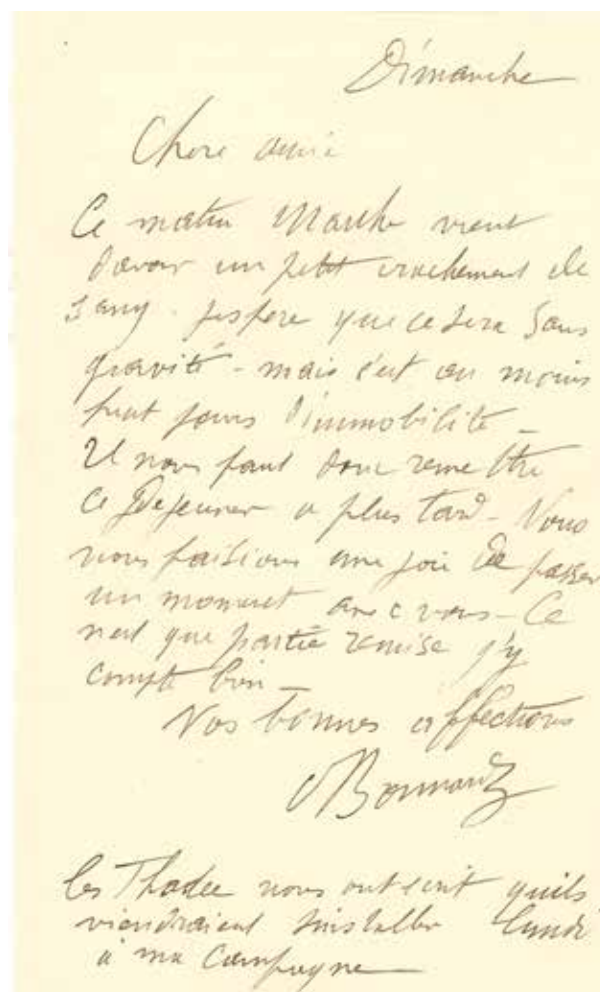 Dimanche
Chere amie
Ce matin Marthe vient
d'avoir un petit crachement de
sang. j'espere que ce sera sans
gravité - mais c'est au moins
huit jours d'immobilité -
Il nous faut donc remettre
ce dejeuner a plus tard - Nous
nous faisions une joie de passer
un moment avec vous - Ce
n'est que partie remise j'y
compte bien -
Nos bonnes affections
Bonnard
les Thadée nous ont ecrit quils
viendraient sinstaller lundi
à ma campagne